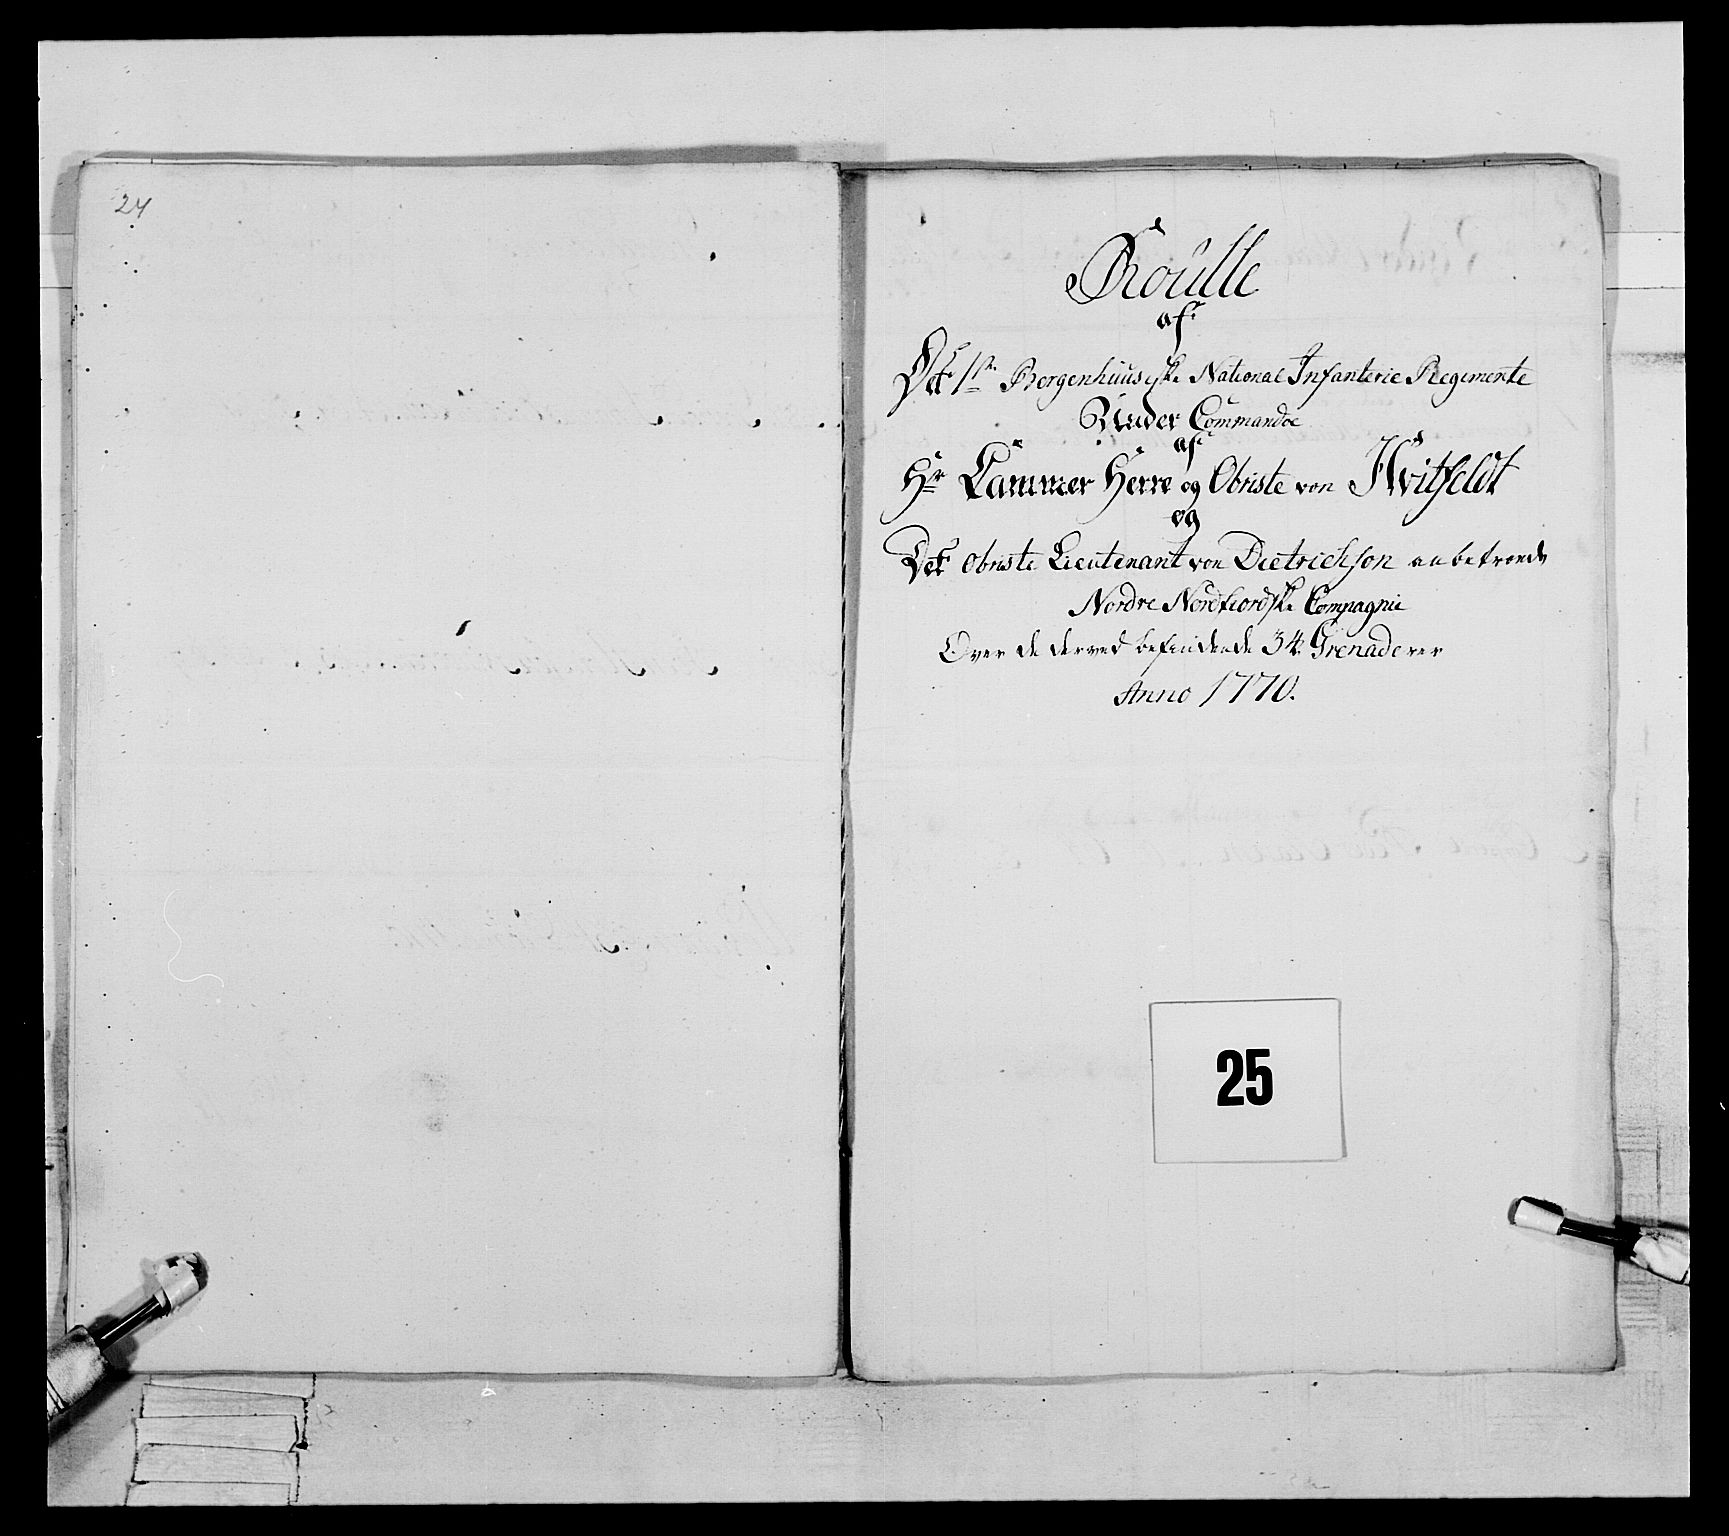 24
Roulle
af
Det 1ste Bergenhuusiske National Infanterie Regimente
Under Commandoe
af
Hr Cammer Herre og Obriste von Hvitfeldt
og
Det Obriste Lieutenant von Dietrichson anbetroede
Nordre Nordfiordske Compagnie
Over de derved befindende 34 Grenaderer
Anno 1770.
25